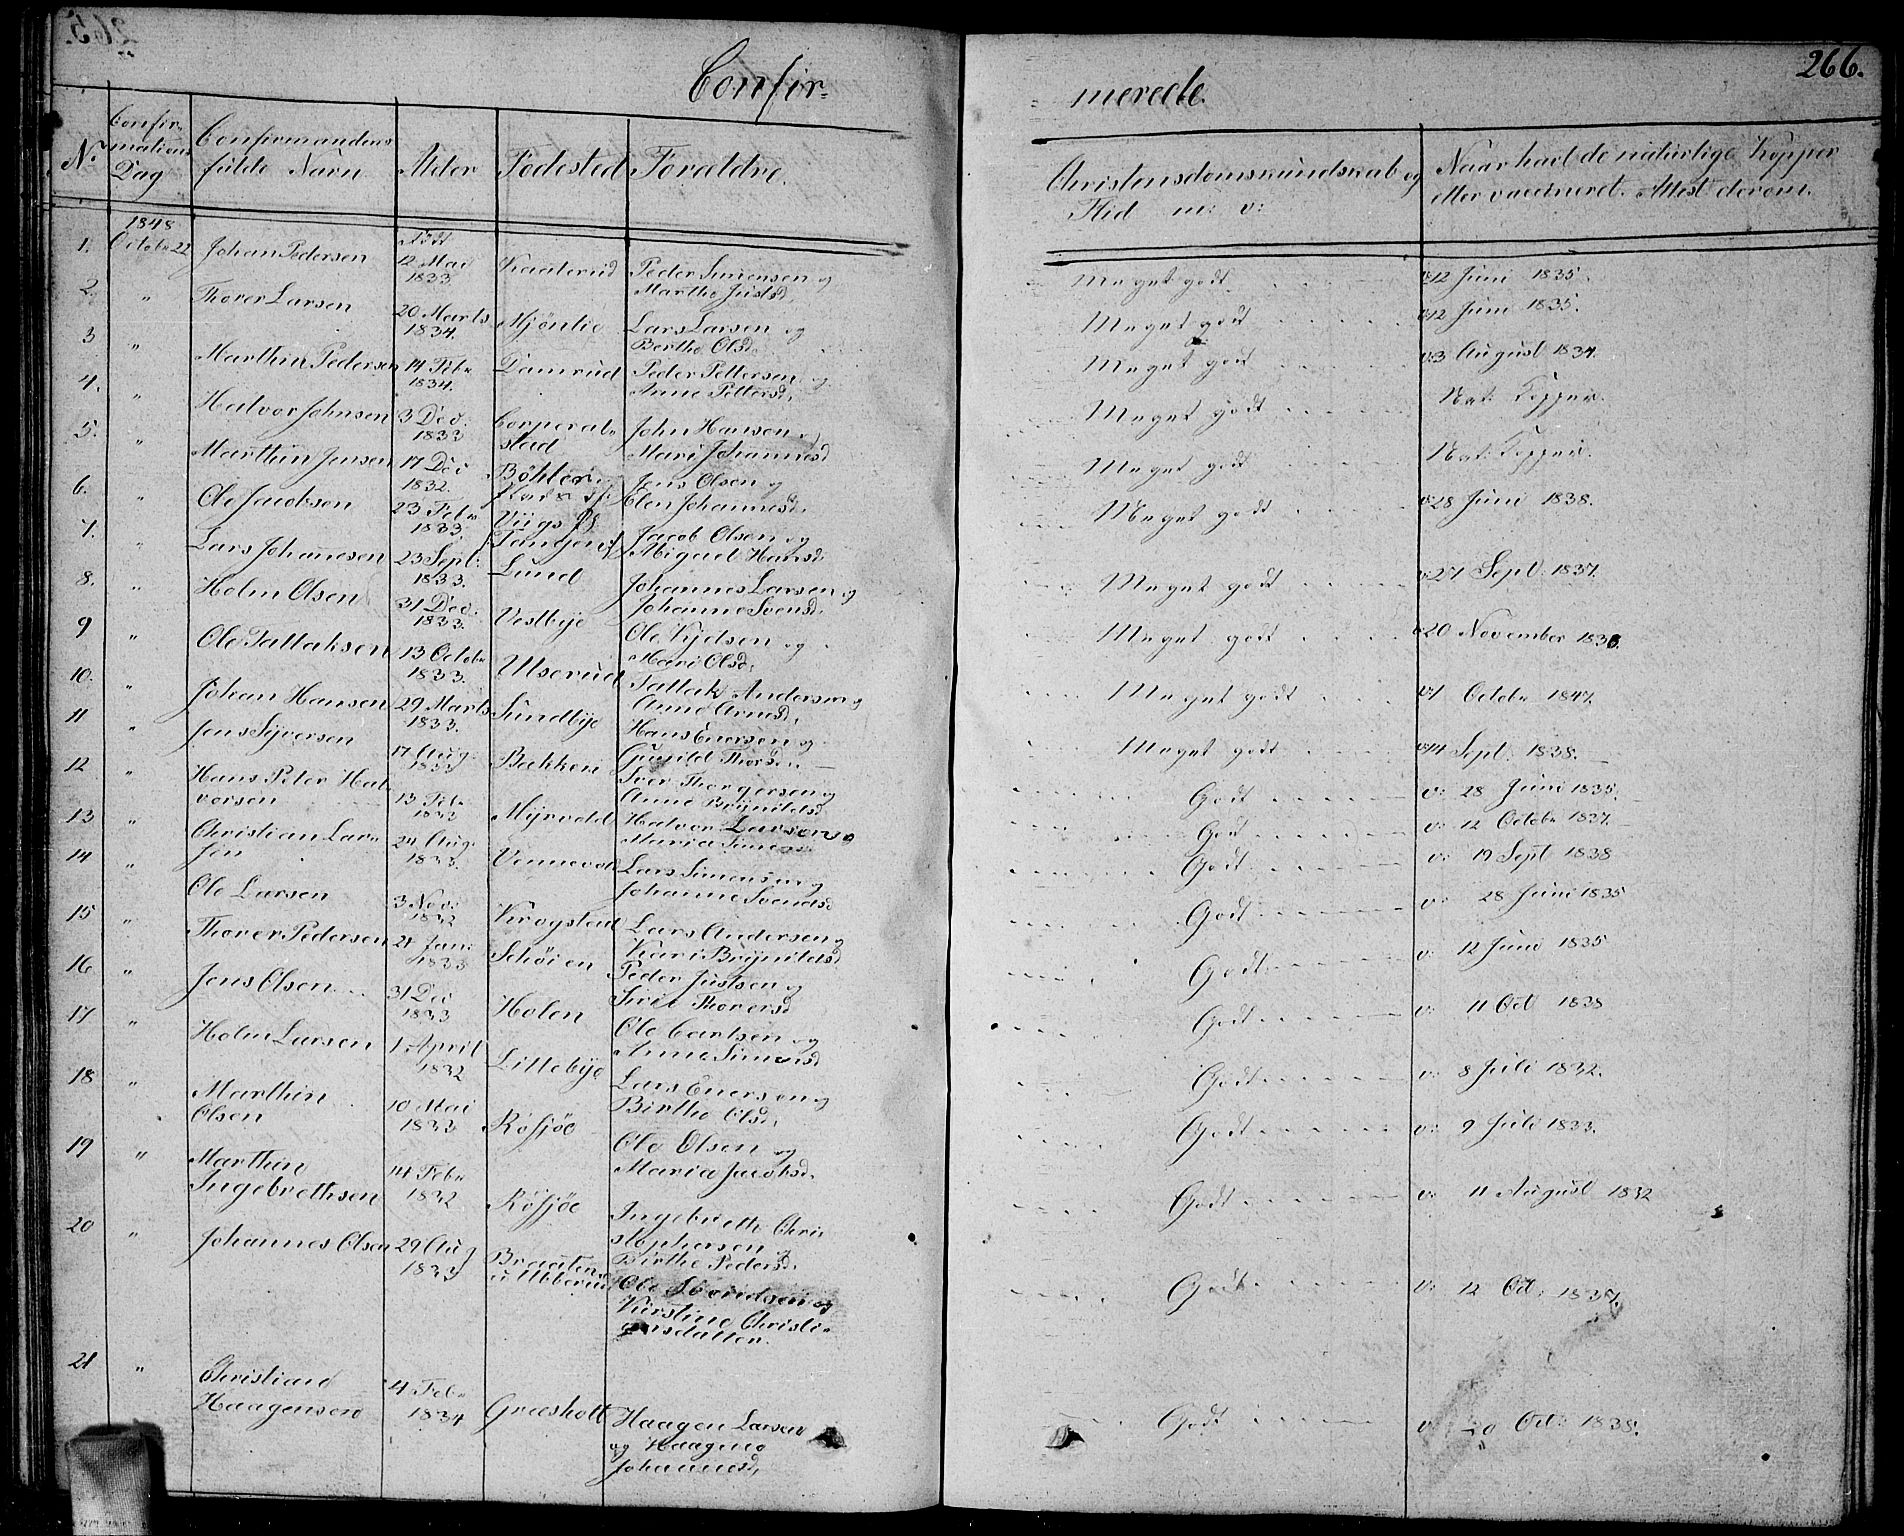 266.
Confir-
merede.
No
Confir-
mations
Dag
Confirmandens
fulde Navn
Alder
Fødested
Forældre.
Christensdomskundskab og
Flid m: v:
Naar havt de naturlige Kopper
eller vaccineret. Attest derom.
1848
1. Octobr 22 Johan Pedersen Födt 12 Mai 1833 Kaaterud Peder Simensen og
Marthe Justsd. Meget godt v: 12 Juni 1835.
2. " Thorer Larsen 20 Marts 1834. Mjönlie Lars Larsen og
Berthe Olsd. Meget godt v: 12 Juni 1835.
3 " Marthin Pedersen 14 Febr 1834. Damrud Peder Pettersen og
Anne Pettersd. Meget godt v: 3 August 1834.
4. " Halvor Johnsen 3 Dec. 1833 Corperal-
stad John Hansen og
Mari Johannesd Meget godt Nat: Kopper.
5. " Marthin Jensen 17 Dec 1832. Böhler
Jens Olsen og
Elen Johannesd. Meget godt Nat: Kopper.
6. " Ole Jacobsen 23 Febr 1833.
Tangen Jacob Olsen og
Abigael Hansd. Meget godt v: 28 Juni 1838.
7. " Lars Johanesen 23 Sept: 1833. Lund Johannes Larsen og
Johanne Svensd. Meget godt v: 27 Sept: 1837.
8. " Holm Olsen 31 Dec. 1833. Vestbye Ole Kjelsen og
Mari Olsd. Meget godt v: 20 November
9 " Ole Tallaksen 13 Octobr 1833. Ulserud Tallak Andersen og
Anne Arnesd. Meget godt Octobr 1847.
10. " Johan Hansen 29 Marts 1833. Sundbye Hans Enersen og
Gunild Thorsd. Meget godt v: 14 Sept: 1838.
11 " Jens Syversen 17 Aug: 1833 Bakken Sver Thorgersen og
Anne Brynildsd Godt v: 28 Juni 1835.
12 " Hans Peter Hal-
vorsen 13 Feb. 1833 Myrvold Halvor Larsen og
Maria Godt v: 12 Octobr 1837.
13 " Christian Lar-
sen 24 Aug: 1833. Vennevold Lars Simensen og
Johanne Svendsd Godt v: 19 Sept 1838
14 " Ole Larsen 3 Nov: 1832 Krogstad Lars Andersen og
Kari Brynildsd Godt v: 28 Juni 1835
15 " Thorer Pedersen 21 Jan: 1833 Schöien Peder Justsen og
Siri Thorersd Godt v: 12 Juni 1835
16 " Jens Olsen 31 Dec 1833 Holen Ole Carlsen og
Anne Simensd Godt v: 11 Oct 1838
17 " Holm Larsen 1. April 1832 Littebye Lars Enersen og
Birthe Olsd. Godt v: 8 Juli 1832.
18 " Marthin
Olsen 10 Mai 1833 Röfsjöe Ole Olsen og
Maria Jacobsd. Godt v: 9 Juli 1833.
19 " Marthin
Ingebrethsen 14 Febr 1832 Röfsjöe Ingebreth Chri-
stophersen og
Birthe Pedersd. Godt v: 11 August 1832
20 " Johannes Olsen 29 Aug 1833 Braaten
u Ulberud Ole Svendsen og
Kirstine Christi-
ansdatter. Godt v: 12 Oct: 1837.
21 " Christian
Haagensen 4 Febr 1834 Græsholt Haagen Larsen
og Haagine
Johannesd. Godt v: 20 Oct: 1838.